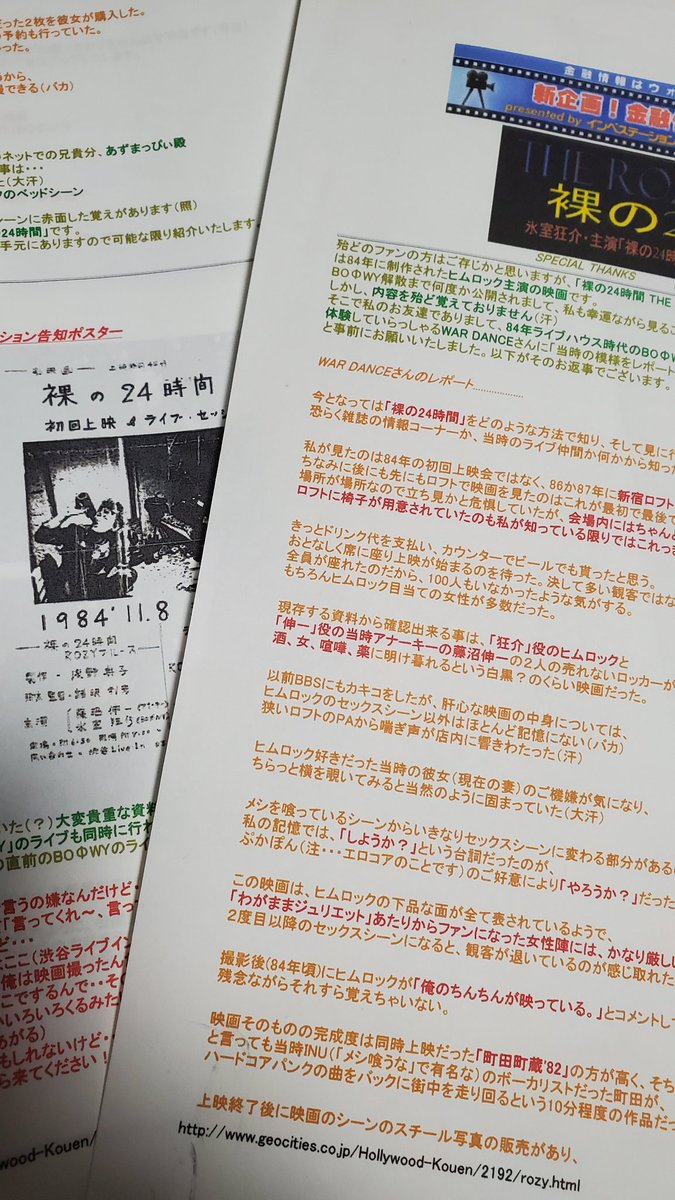 った2枚を彼女が購入した。
予約も行っていた。
った。
から、
できる(バカ)
ネットでの兄貴分、あずまっぴぃ殿
事は・・・
(大汗)
のベッドシーン
シーンに赤面した覚えがあります(照)
24時間」です。
手元にありますので可能な限り紹介いたします
ション告知ポスター
裸の24時間
初回上映&ライブ・セッ
1984'11.8
裸の24時間
ROZYブルース
いた(?)大変貴重な資料
Y」のライブも同時に行わ
の直前のBOΦWYのライ
言うの嫌なんだけど・
「言ってくれ~、言っ
ど・・・
ここ(渋谷ライブイン
俺は映画撮ったん
こでするんで・・そ
いろいろくるみた
あがる)
もしれないけど・
ら来てください!
wood-Kouen/
金融情報はウォ
新企画!金融
presented by インベステーション
THE RO
裸の2
氷室狂介・主演「裸の24時
SPECIAL THANKS
殆どのファンの方はご存じかと思いますが、「裸の24時間 THE
は84年に制作されたヒムロック主演の映画です。
BOΦWY解散まで何度か公開されまして、私も幸運ながら見るこ
しかし、内容を殆ど覚えておりません(汗)
そこで私のお友達でありまして、84年ライブハウス時代のBOΦW
体験していらっしゃるWAR DANCEさんに「当時の模様をレポート
と事前にお願いいたしました。以下がそのお返事でございます。
WAR DANCEさんのレポート..................
今となっては「裸の24時間」をどのような方法で知り、そして見に行
恐らく雑誌の情報コーナーか、当時のライブ仲間か何かから知った
私が見たのは84年の初回上映会ではなく、86か87年に新宿ロフト
ちなみに後にも先にもロフトで映画を見たのはこれが最初で最後で
場所が場所なので立ち見かと危惧していたが、会場内にはちゃんと
ロフトに椅子が用意されていたのも私が知っている限りではこれっき
きっとドリンク代を支払い、カウンターでビールでも貰ったと思う。
おとなしく席に座り上映が始まるのを待った。決して多い観客ではな
全員が座れたのだから、100人もいなかったような気がする。
もちろんヒムロック目当ての女性が多数だった。
現存する資料から確認出来る事は、「狂介」役のヒムロックと
「伸一」役の当時アナーキーの藤沼伸一の2人の売れないロッカーが
酒、女、喧嘩、薬に明け暮れるという白黒?のくらい映画だった。
以前BBSにもカキコをしたが、肝心な映画の中身については、
ヒムロックのセックスシーン以外はほとんど記憶にない(バカ)
狭いロフトのPAから喘ぎ声が店内に響きわたった(汗)
ヒムロック好きだった当時の彼女(現在の妻)のご機嫌が気になり、
ちらっと横を覗いてみると当然のように固まっていた(大汗)
メシを喰っているシーンからいきなりセックスシーンに変わる部分がある
私の記憶では、「しようか?」という台詞だったのが、
ぷかぽん(注・・・エロコアのことです)のご好意により「やろうか?」だった
この映画は、ヒムロックの下品な面が全て表されているようで、
「わがままジュリエット」あたりからファンになった女性陣には、かなり厳しい
2度目以降のセックスシーンになると、観客が退いているのが感じ取れた
撮影後(84年頃)にヒムロックが「俺のちんちんが映っている。」とコメントして
残念ながらそれすら覚えちゃいない。
映画そのものの完成度は同時上映だった「町田町蔵'82」の方が高く、そち
と言っても当時INU(「メシ喰うな」で有名な)のボーカリストだった町田が、
ハードコアパンクの曲をバックに街中を走り回るという10分程度の作品だっ
上映終了後に映画のシーンのスチール写真の販売があり、
http://www.geocities.co.jp/Hollywood-Kouen/2192/rozy.html